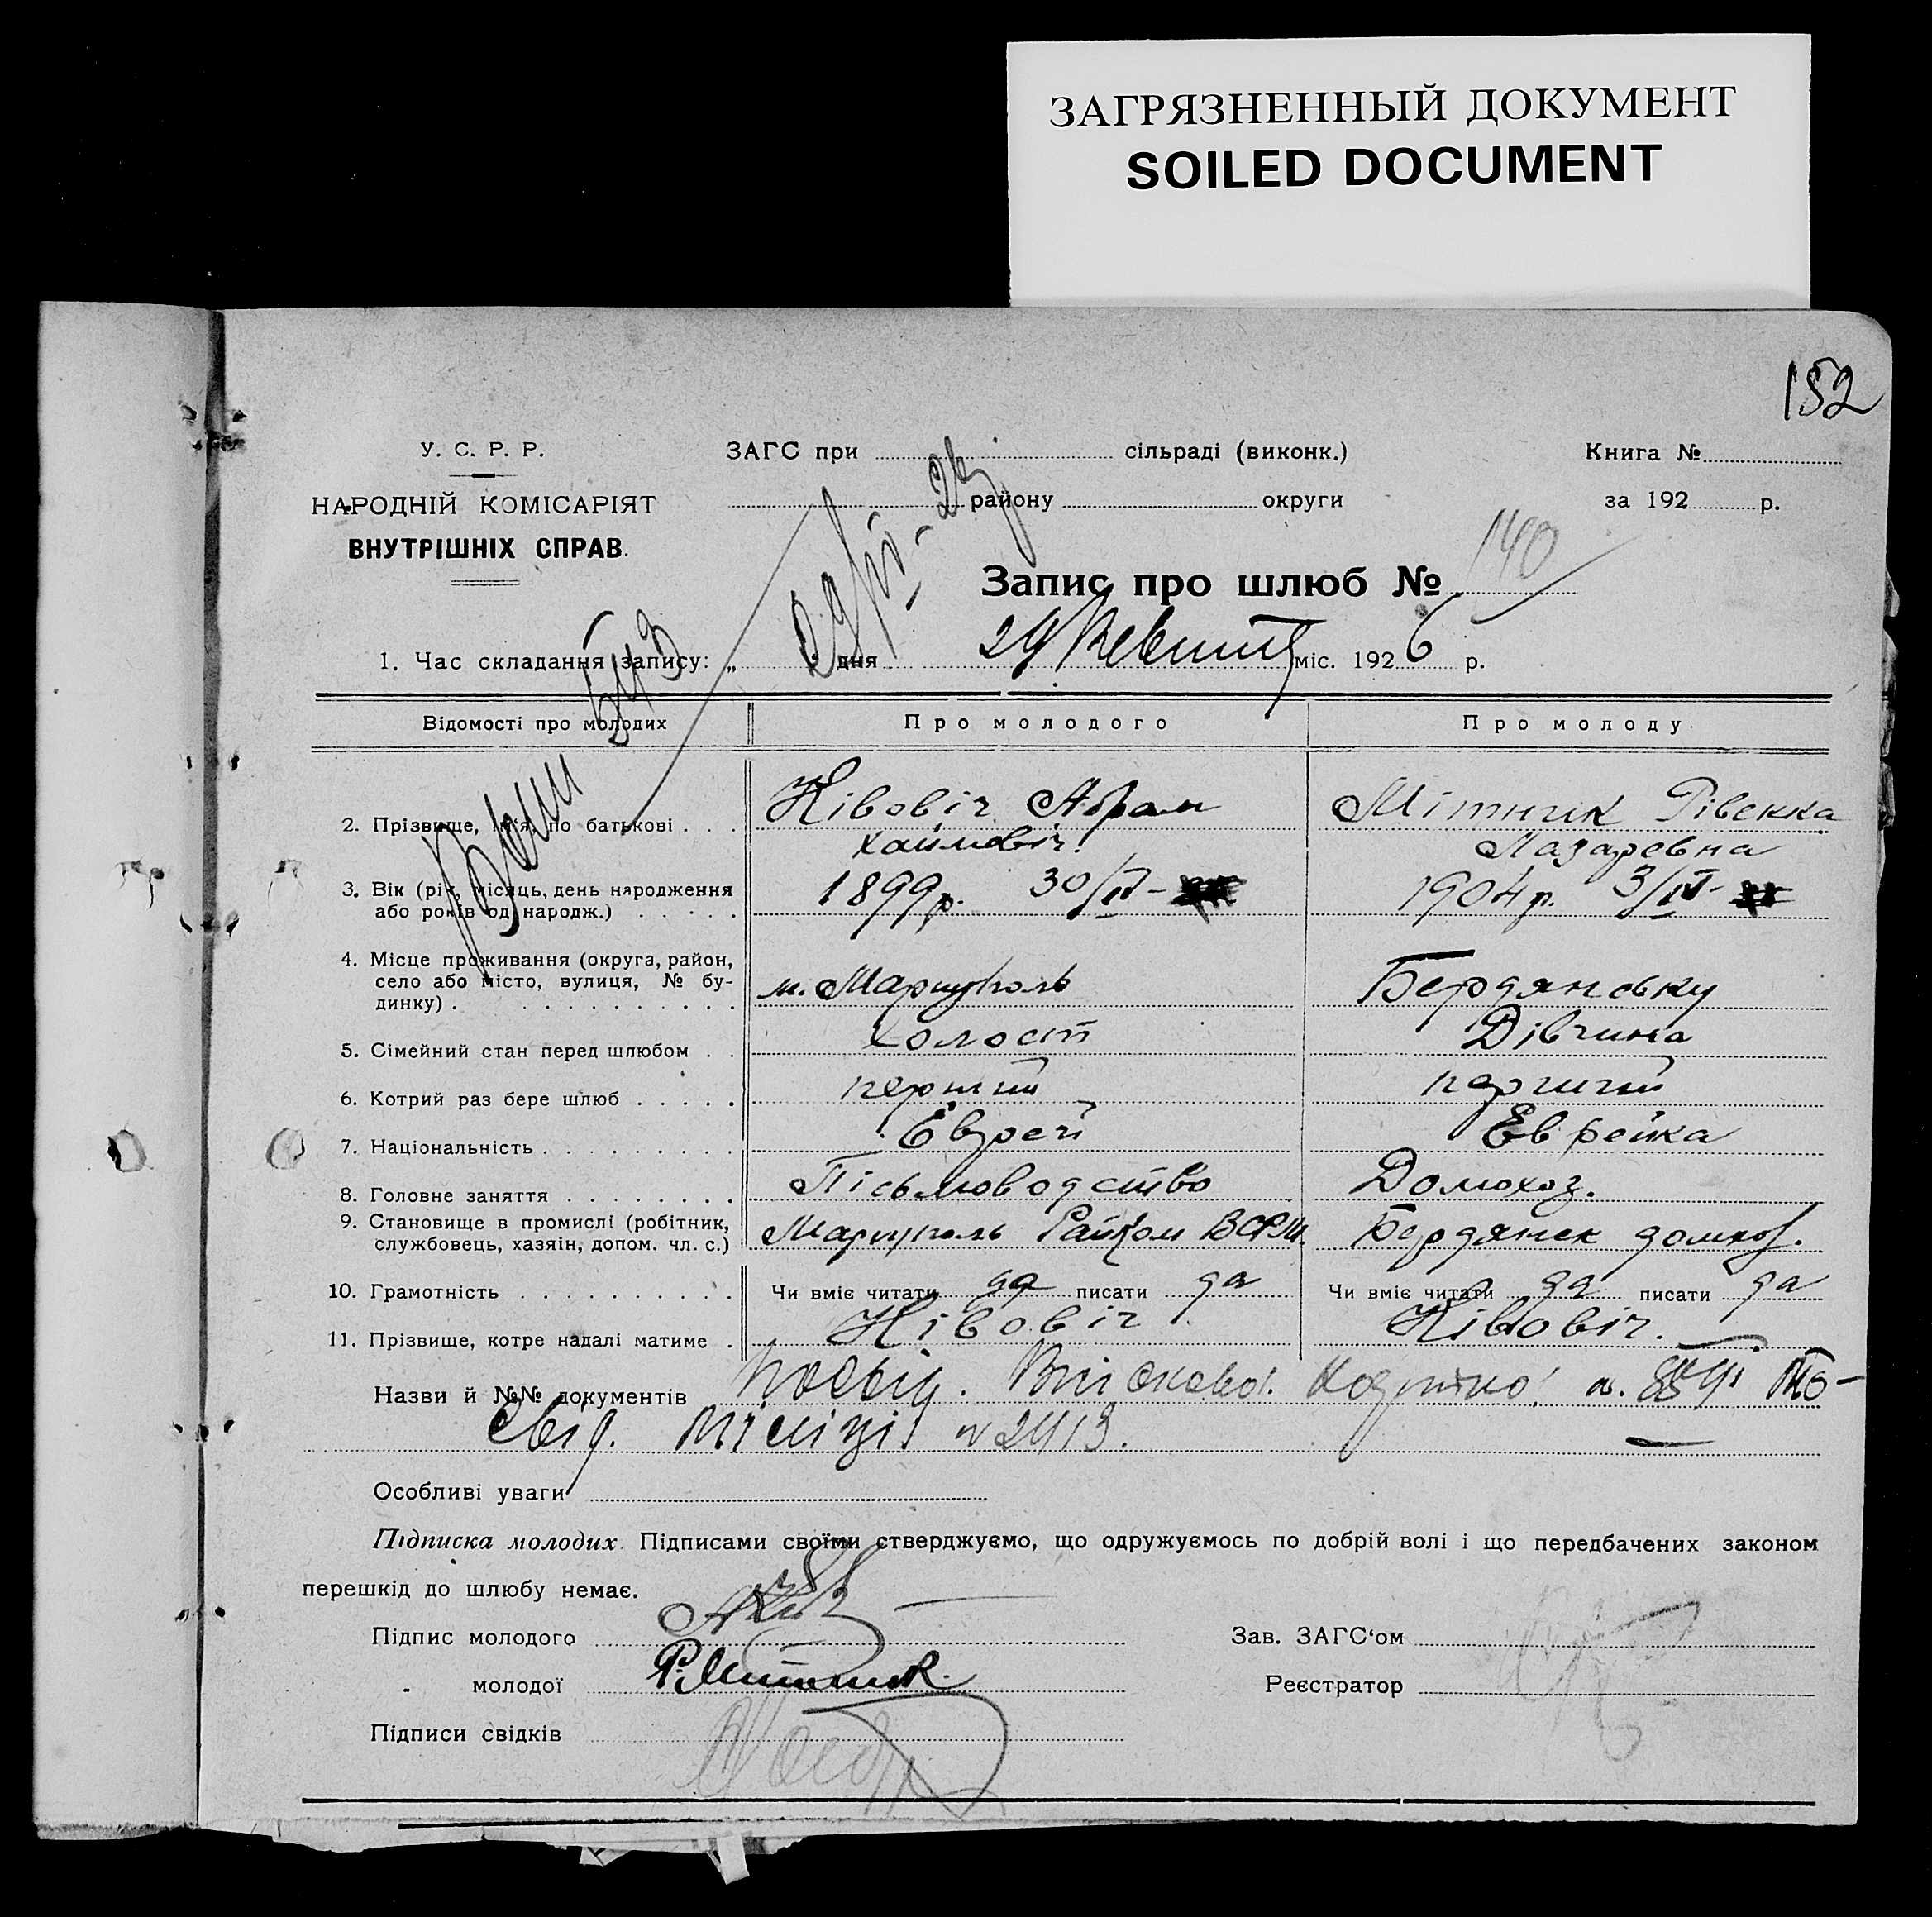 ЗАГРЯЗНЕННЫЙ ДОКУМЕНТ
SOILED DOCUMENT
152
У. С. Р. Р.
НАРОДНІЙ КОМІСАРІЯТ
ВНУТРІШНІХ СПРАВ.
ЗАГС при сільраді (виконк.)
району округи
Книга №
за 192 р.
Запис про шлюб № 140
1. Час складання запису: „ дня 29 міс. 1926 р.
Відомості про молодих Про молодого Про молоду.
2. Прізвище, ім'я, по батькові . . . Ківовіч Абрам Мітник Рівекка
хаймовіч Лазаревна
3. Вік (рік, місяць, день народження 1899р. 30/IV- 1904р. 3/IV-
або років од народж.) . . . . .
4. Місце проживання (округа, район,
село або місто, вулиця, № бу- м. Мариуполь Бердянську
динку) . . . . . . . . . . .
5. Сімейний стан перед шлюбом . . холост Дівчина
6. Котрий раз бере шлюб . . . . . перший перший
7. Національність . . . . . . . . . Еврей Еврейка
8. Головне заняття . . . . . . . . Пісьмоводство Домохоз.
9. Становище в промислі (робітник, Мариуполь Райком Бердянск
службовець, хазяін, допом. чл. с.)
10. Грамотність . . . . . . . . . . Чи вміє читати да писати да Чи вміє читати да писати да
11. Прізвище, котре надалі матиме . Ківовіч Ківовіч.
Назви й №№ документів
Свід. Міліції N 2413.
Особливі уваги
Підписка молодих. Підписами своїми стверджуємо, що одружуємось по добрій волі і що передбачених законом
перешкід до шлюбу немає.
Підпис молодого
Зав. ЗАГС‘ом
молодої Р. Митник.
Реєстратор
Підписи свідків